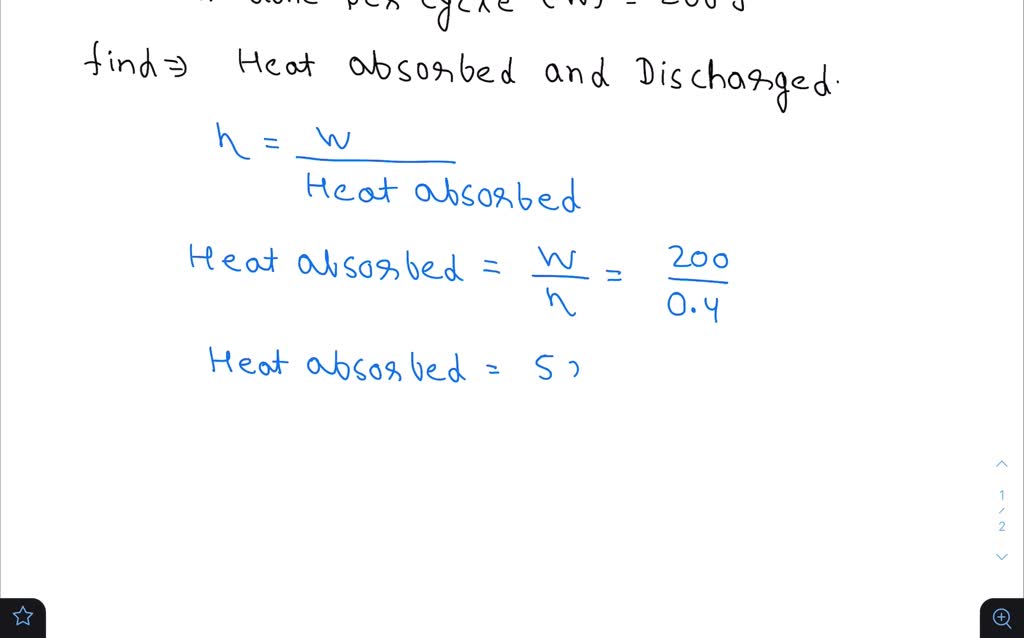 per cycle (W) = 200 J
find ⇒ Heat absorbed and Discharged.
η = W / Heat absorbed
Heat absorbed = W / η = 200 / 0.4
Heat absorbed = 5
1 / 2